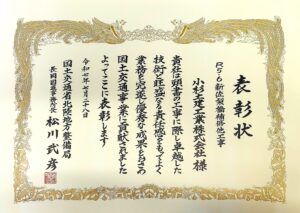 表彰状
R5・6新佐梨橋補修他工事
小杉土建工業株式会社 様
貴社は頭書の工事に際し卓越した
技術と旺盛なる責任感をもってよく
業務を完遂し優秀な成果をおさめ
国土交通事業に貢献されました
よってここに表彰します
令和七年七月二十八日
国土交通省北陸地方整備局
長岡国道事務所長 松川武彦